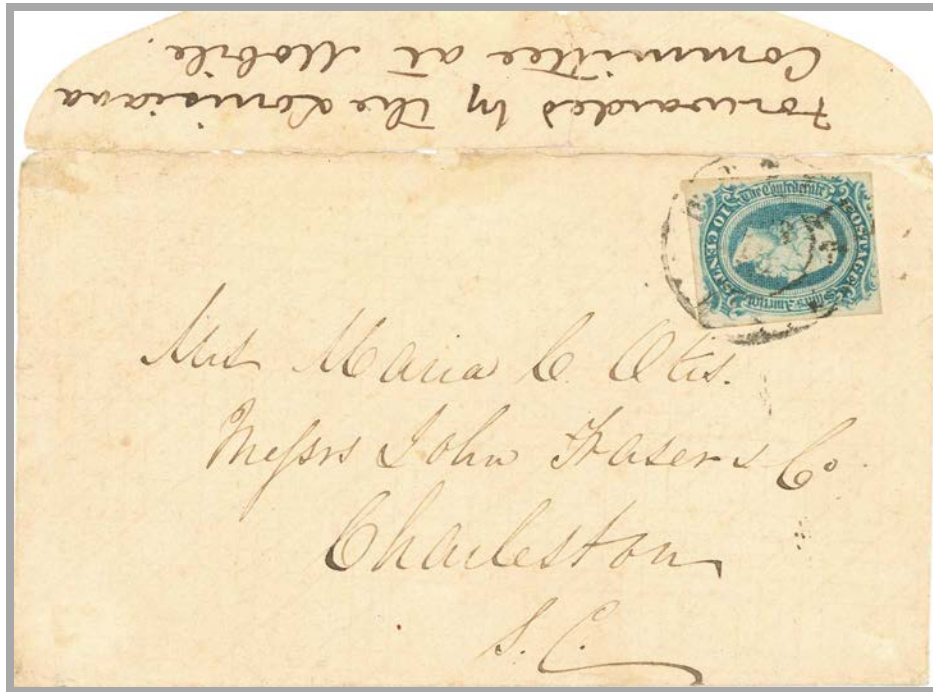 Forwarded by the Louisiana
Committee at Mobile.
The Confederate
POSTAGE
States of America
10 CENTS
Mrs Maria C. Otis.
Messrs John Fraser & Co
Charleston
S. C.